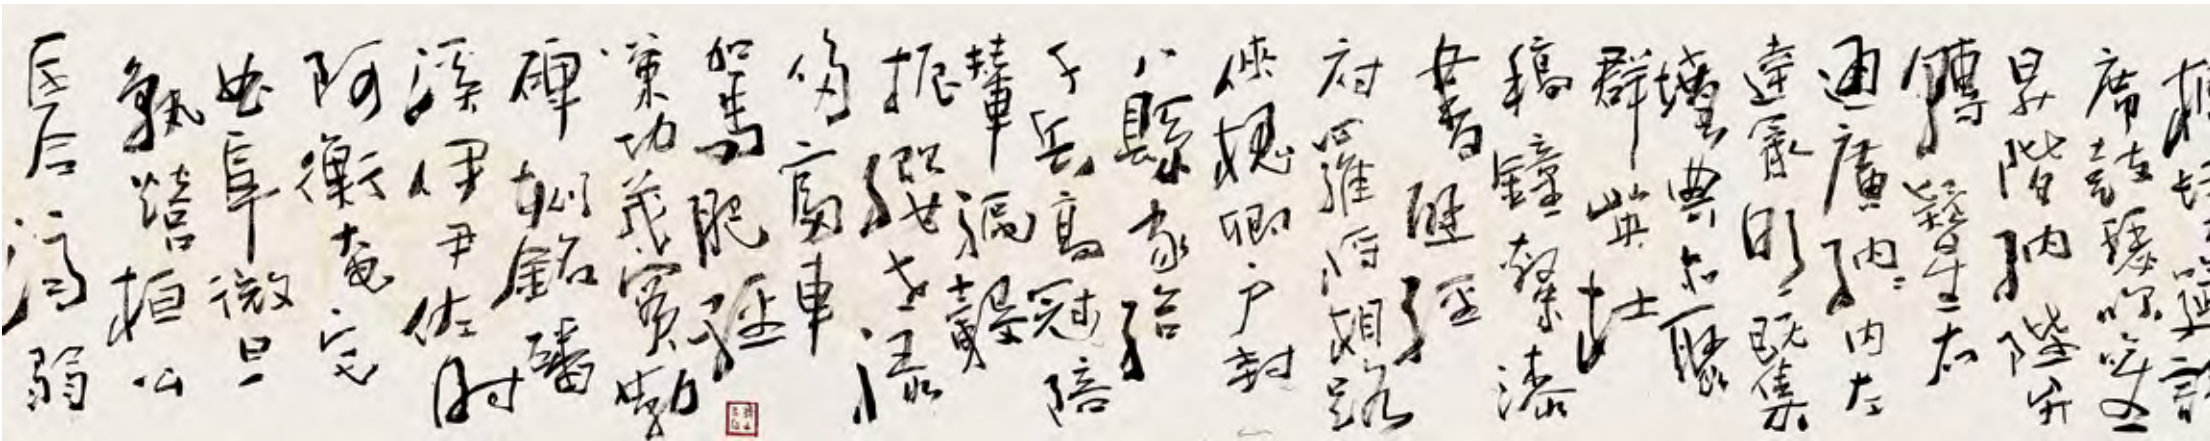 肆筵設
席鼓瑟吹笙
昇階納陛弁
轉疑星右
通廣內左
達承明既集
墳典亦聚
群英杜
稿鐘隸漆
書壁經
府羅將相路
俠槐卿戶封
八縣家給
千兵高冠陪
輦驅轂
振纓世祿
侈富車
駕肥輕
策功茂實勒
碑刻銘磻
溪伊尹佐时
阿衡奄宅
曲阜微旦
孰營桓公
匡合濟弱